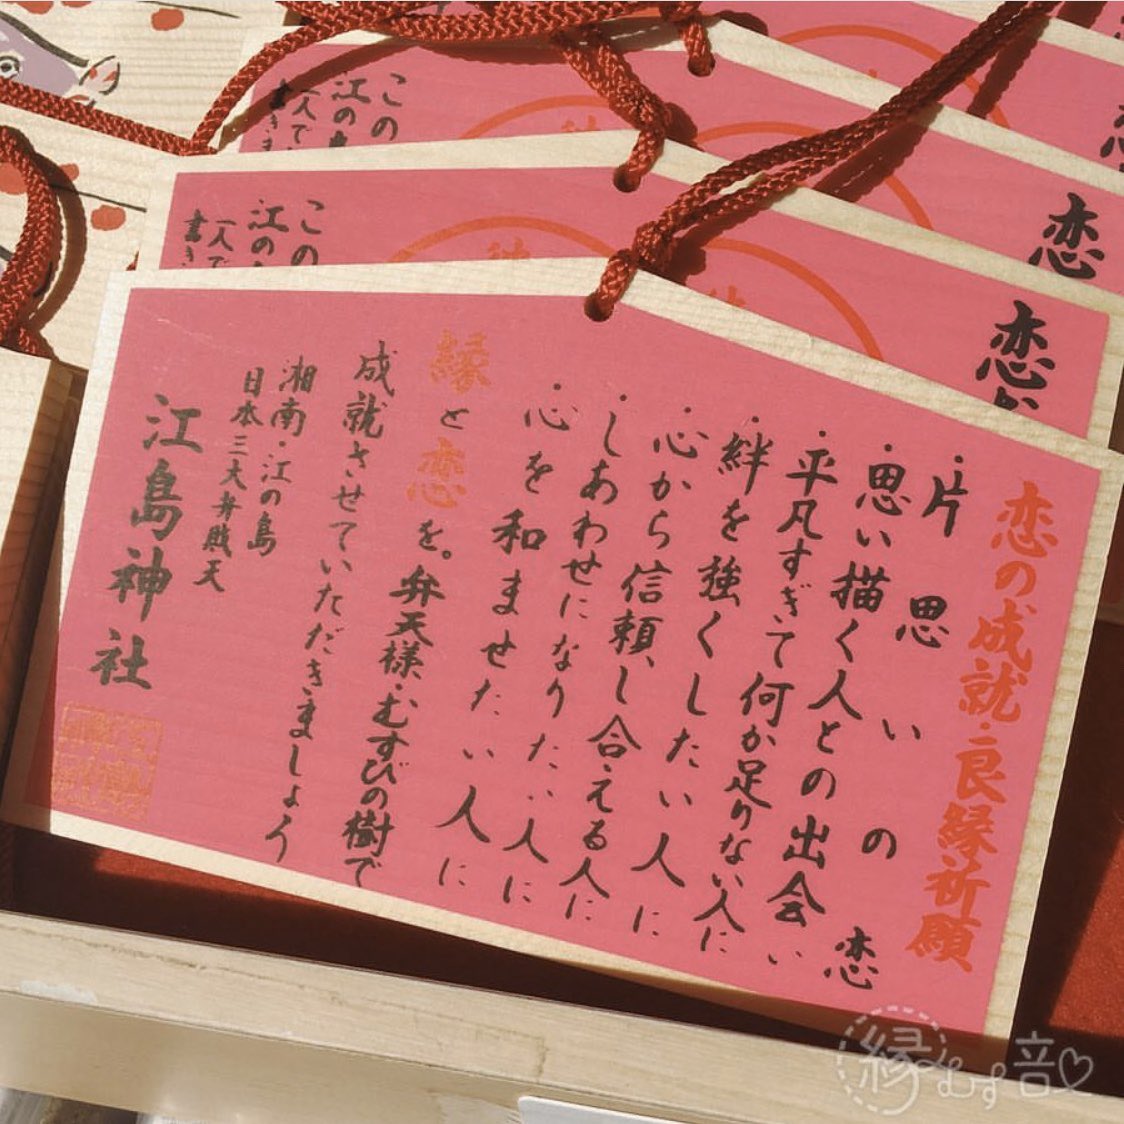 恋の成就・良縁祈願
・片思いの恋
・思い描く人との出会い
・平凡すぎて何か足りない人に
・絆を強くしたい人に
・心から信頼し合える人に
・しあわせになりたい人に
・心を和ませたい人に
縁と恋を。弁天様・むすびの樹で
成就させていただきましょう
湘南・江の島
日本三大弁財天
江島神社
恋
恋
この
江の
一人で
書き
この
江の島
一人で
書きま
縁むす音